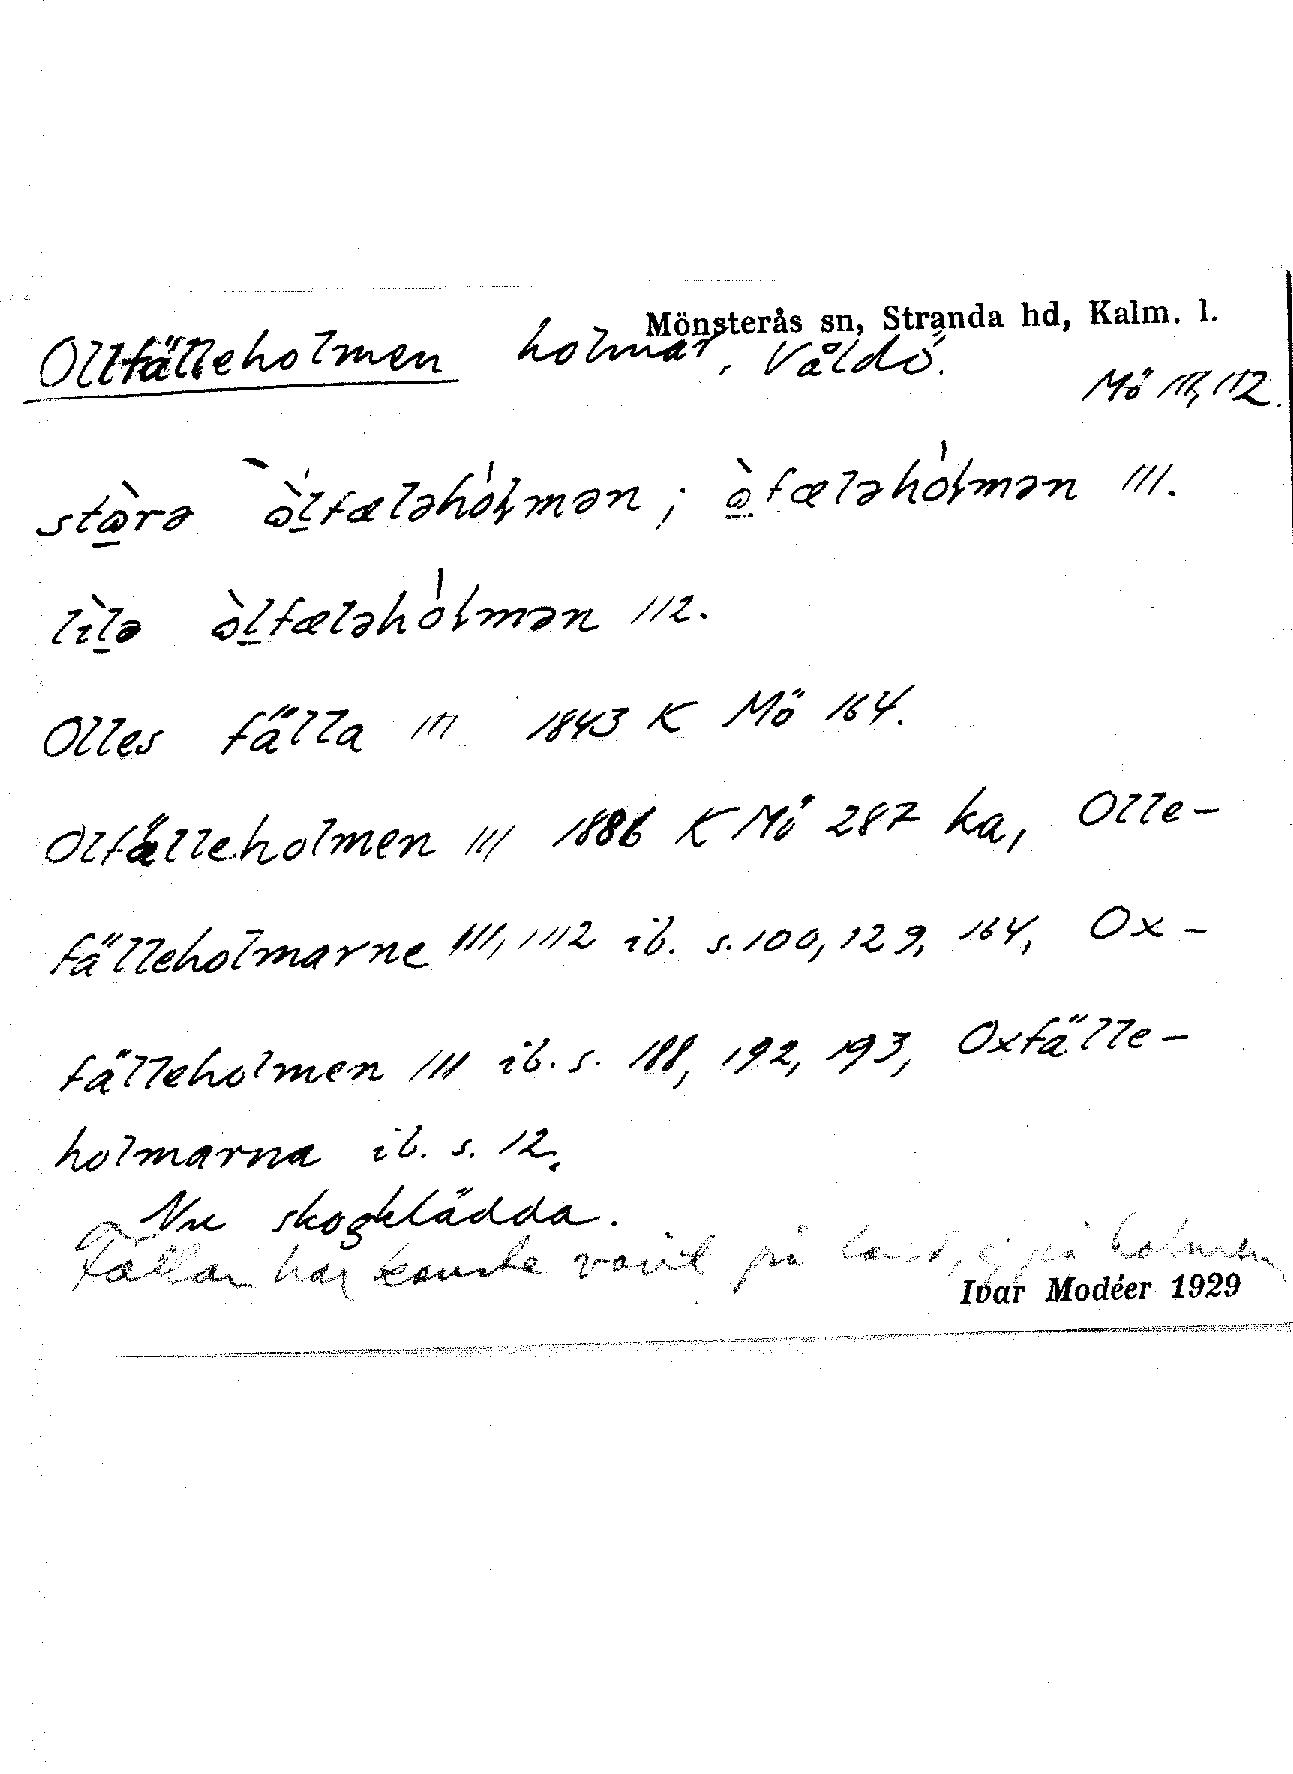 Mönsterås sn, Stranda hd, Kalm. l.
Ollfälleholmen holmar, Våldö.
Mö 111, 112.
stòrə òlfæləhólmən ; òfæləhólmən 111.
lìlə òlfæləhólmən 112.
Olles fälla 111 1843 K Mö 164.
Olfälleholmen 111 1886 K Mö 287 ka, Olle-
fälleholmarne 111, 112 ib. s. 100, 129, 164, Ox-
fälleholmen 111 ib. s. 188, 192, 193, Oxfälle-
holmarna ib. s. 12.
Nu skogklädda.
Fällan har kanske varit på land, ej på holmen
Ivar Modéer 1929